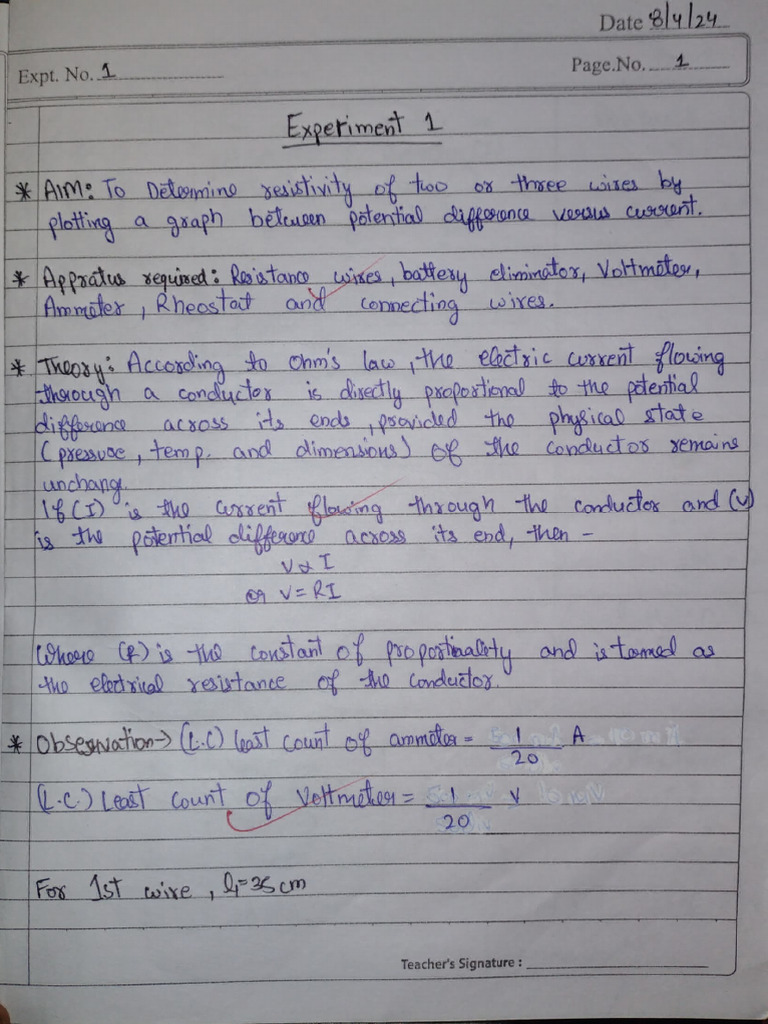 Date 8/4/24
Expt. No. 1
Page.No. 1
Experiment 1
* AIM: To Determine resistivity of two or three wires by
plotting a graph between potential difference versus current.
* Appratus required: Resistance wires, battery eliminator, Voltmeter,
Ammeter, Rheostat and connecting wires.
* Theory: According to Ohm's law, the electric current flowing
through a conductor is directly proportional to the potential
difference across its ends, provided the physical state
(pressure, temp. and dimensions) of the conductor remains
unchange.
If (I) is the current flowing through the conductor and (V)
is the potential difference across its end, then -
V ∝ I
or V = RI
Where (R) is the constant of proportinality and is termed as
the electrical resistance of the conductor.
* Observation→ (L.C) least count of ammeter = 1/20 A
(L.C.) Least count of Voltmeter = 1/20 V
For 1st wire, l₁=35 cm
Teacher's Signature :